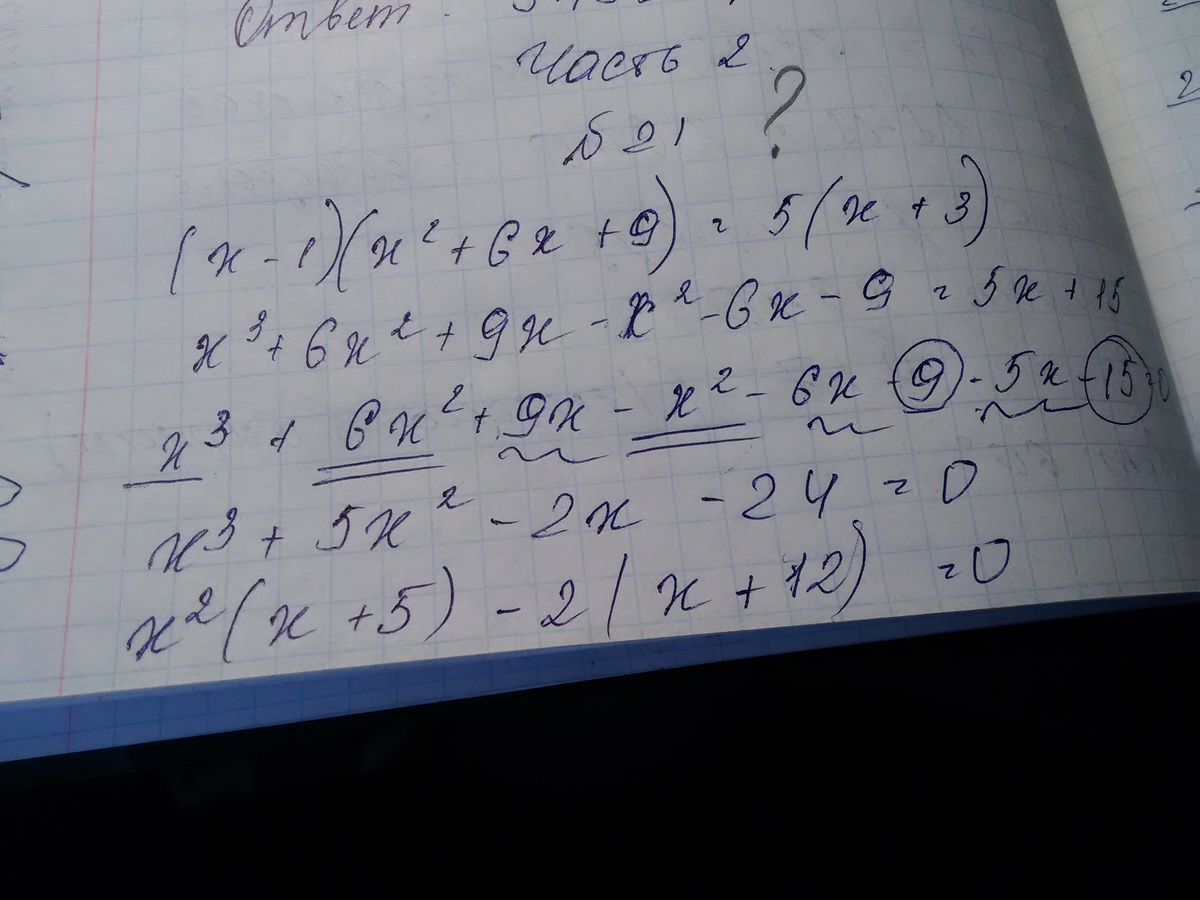 Ответ.
Часть 2
№21 ?
(x-1)(x²+6x+9) = 5(x+3)
x³+6x²+9x-x²-6x-9=5x+15
x³+6x²+9x-x²-6x-9-5x-15=0
x³+5x²-2x-24=0
x²(x+5)-2(x+12)=0